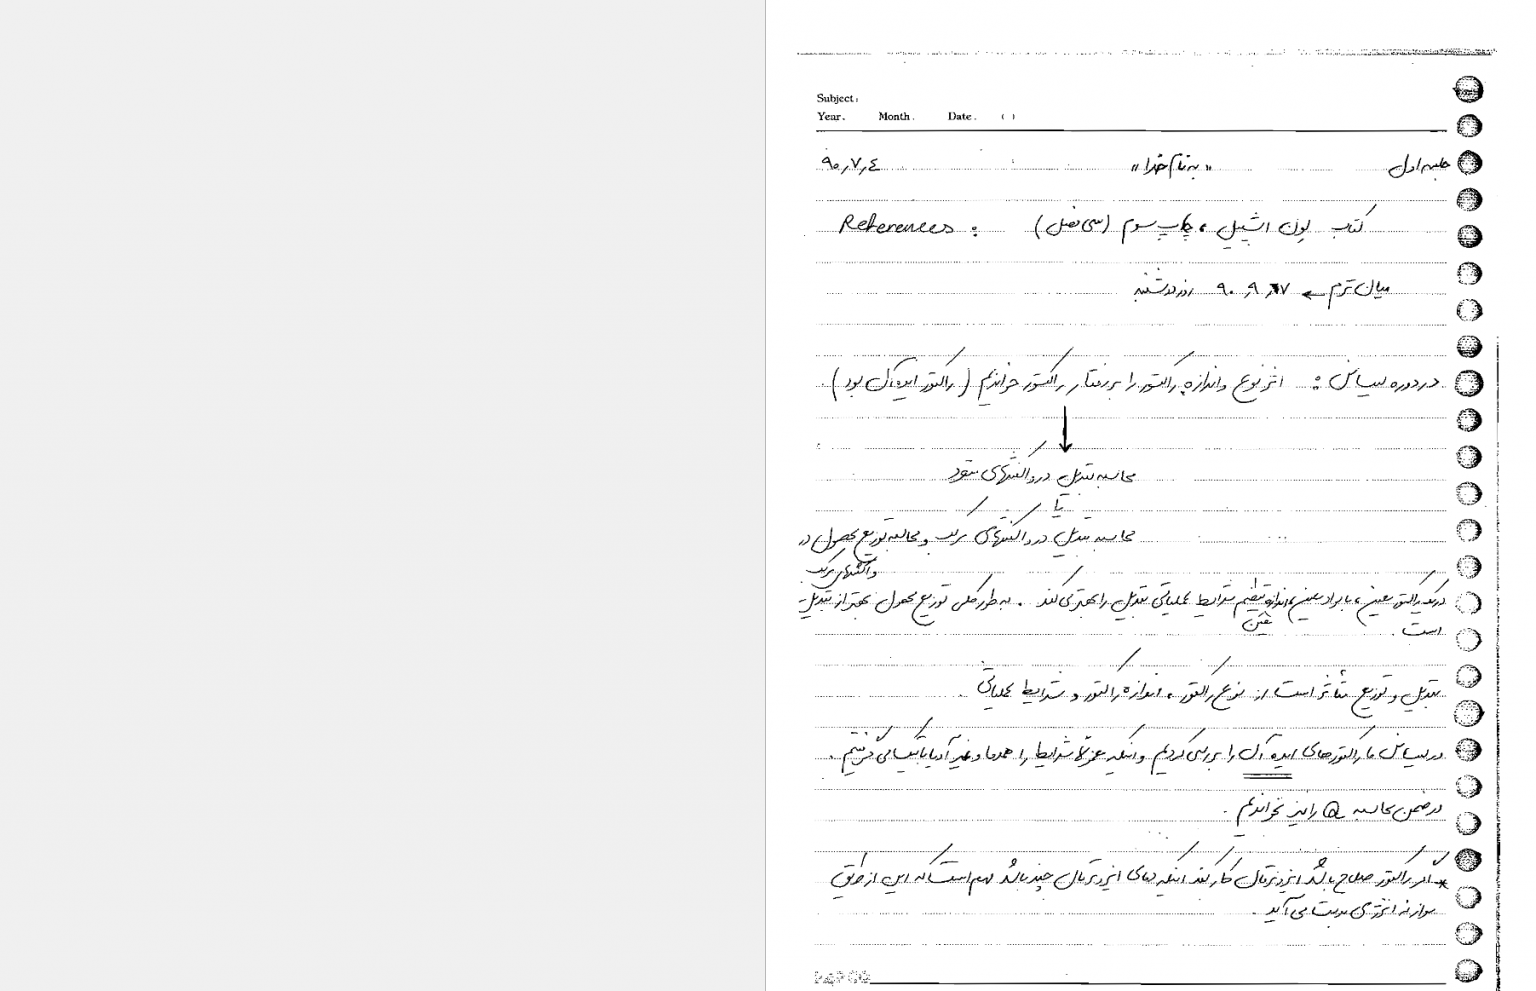 Subject:
Year. Month. Date. ( )
جلسه اول «به نام خدا» ۹۰٫۷٫٤
References : کتاب لون اشپیل ، چاپ سوم (سی فصل)
میان ترم ← ۹۰٫۹٫۱۷ روز دوشنبه
در دوره لیسانس : اثر نوع و اندازه راکتور را بر رفتار راکتور خواندیم (راکتور ایده آل بود)
محاسبه تبدیل در واکنشهای منفرد
تا
محاسبه تبدیل در واکنشهای مرکب و محاسبه توزیع محصول در
واکنشهای مرکب
در یک راکتور معین ، با مواد معین ، اندازه تنظیم شرایط عملیاتی تبدیل را بهتر می کند . به طور کلی توزیع محصول بهتر از تبدیل
معین
است .
تبدیل و توزیع متأثر است از نوع راکتور ، اندازه راکتور و شرایط عملیاتی .
در لیسانس ما راکتورهای ایده آل را بررسی کردیم و اینکه عموماً شرایط را همدما و غیر آدیاباتیک می گرفتیم .
در ضمن محاسبه Q را نیز نخواندیم .
* اگر راکتور صلاح باشد ایزوترمال کار کند اینکه دمای ایزوترمال چند باشد مهم است که این از طریق
موازنه انرژی بدست می آید .
PAPCO